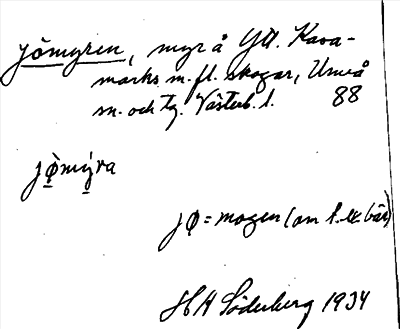 Jömyren, myr å Ytt. Kava-
marks m.fl. skogar, Umeå
sn. och tg. Västerb. l. 88
jømyra
jø = mogen (om t.ex. bär)
H H Söderberg 1934